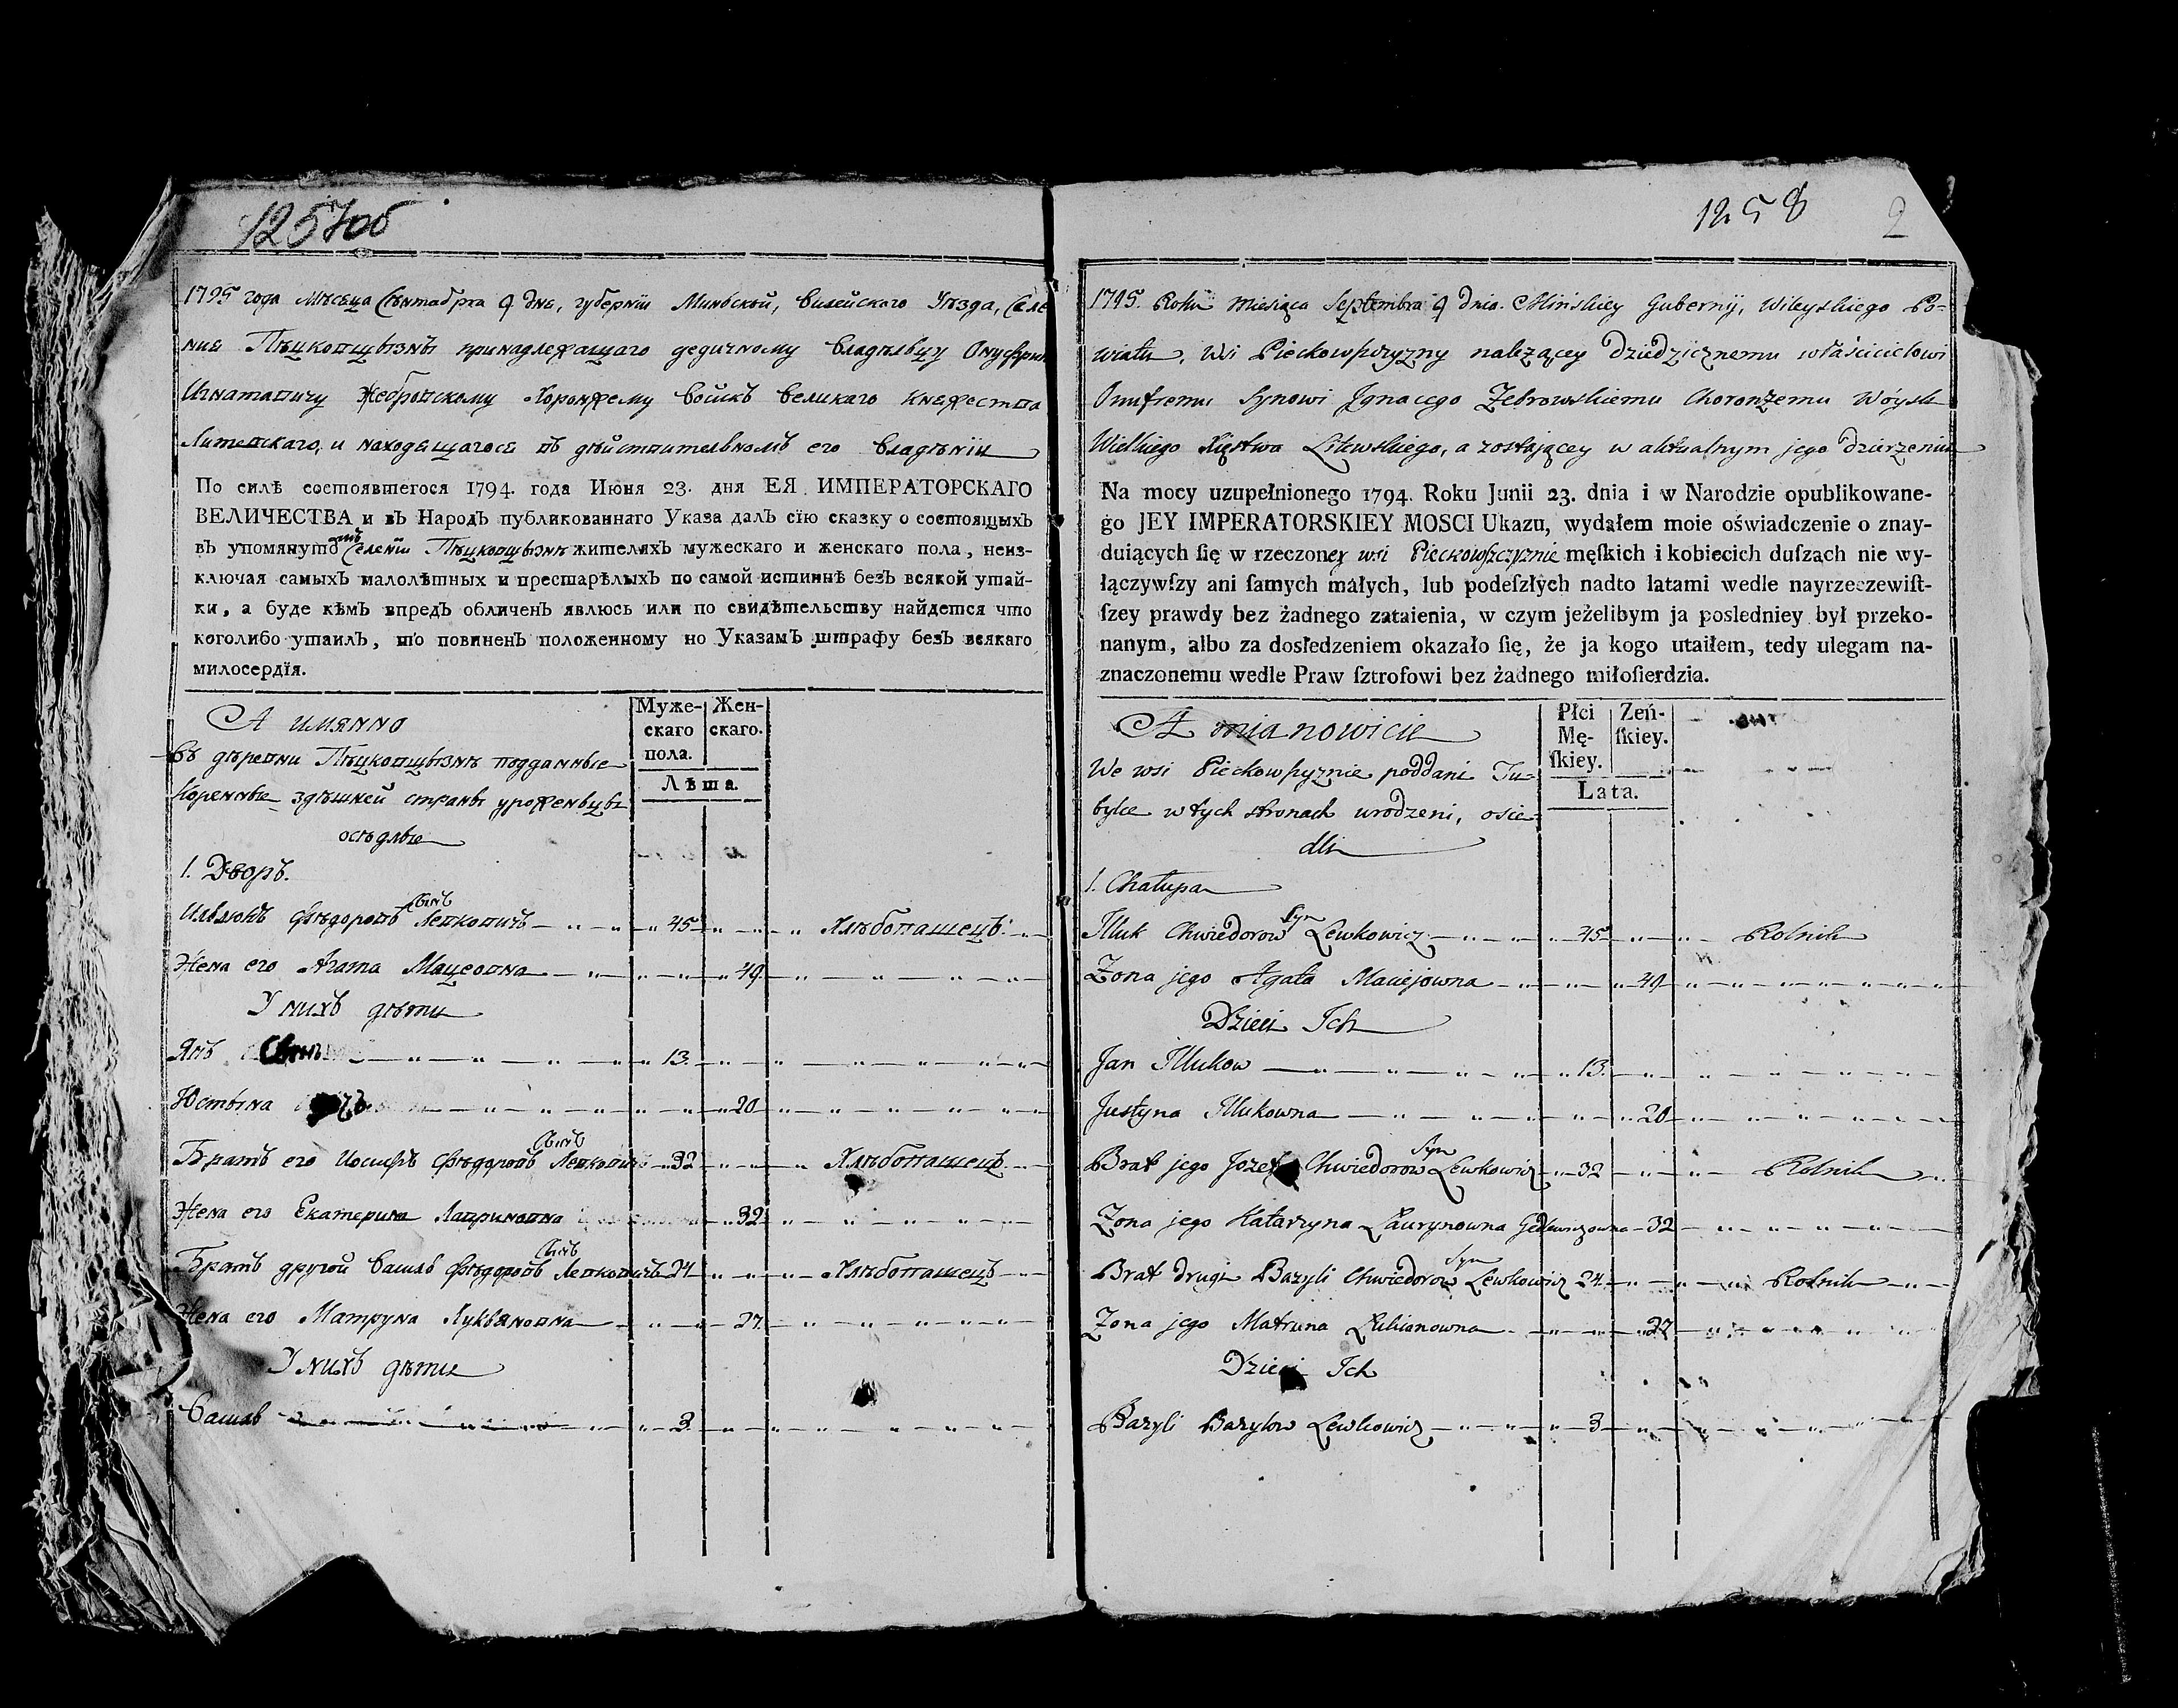 1257об
1795 года Мѣсеца Сѣнтабра 9 дне, губернiи Миньской, Вилейского Уѣзда, Селе
ние Пѣцкопщызнѣ принадлежащаго дедичному Владѣльцу Онуфрию
Игнатапичу Жебропскому Хоронжему Войскъ Великаго Княжестпа
Литепскаго, и находящагосе въ дѣйстпительномъ его Владѣнiи
По силѣ состоявшегося 1794. года Июня 23. дня ЕЯ ИМПЕРАТОРСКАГО
ВЕЛИЧЕСТВА и въ Народъ публикованнаго Указа далъ сїю сказку о состоящыхъ
въ упомянутомъ Селенiи Пѣцкопщызнѣ жителяхъ мужескаго и женскаго пола, неиз-
ключая самыхъ малолѣтных и престарѣлыхъ по самой истиннѣ безъ всякой утай-
ки, а буде кѣмъ впредь обличенъ явлюсь или по свидѣтельству найдется что
коголибо утаилъ, то повиненъ положенному по Указамъ штрафу безъ всякаго
милосердїя.
А имянно
Муже-скаго пола.
Жен-скаго.
Лѣта.
Въ дѣрепни Пѣцкопщызнѣ подданные
Коренные здѣшней страны уроженьцы
осѣдлые
1. Дворъ.
Ильюкъ Фѣдоропъ Сынъ Лепкопичъ 45 Хлѣбопашецъ
Жена его Агата Мацеопна 49
У нихъ дѣти
Янъ Сынъ 13.
Юстына 20
Братъ его Иосифъ Фѣдоропъ Сынъ Лепкопичъ 32 Хлѣбопашецъ
Жена его Екатерина Лапринопна 32
Братъ другой Василь Фѣдоропъ Сынъ Лепкопичъ 24 Хлѣбопашецъ
Жена его Матруна Лукьянопна 27.
У нихъ дѣти
Василь 3.
1258 2
1795. Roku Miesiąca Septembra 9 dnia. Mińskiey Gubernij, Wileyskiego Po-
wiatu, Wsi Pieckowszczyzny nalezącey Dziedzicznemu właścicielowi
Onufremu Synowi Jgnacego Zebrowskiemu Choronżemu Wóysk
Wielkiego Xięstwa Litewskiego, a zostającey w aktualnym jego dzierzeniu
Na mocy uzupełnionego 1794. Roku Junii 23. dnia i w Narodzie opublikowane-
go JEY IMPERATORSKIEY MOSCI Ukazu, wydałem moie oświadczenie o znay-
duiących ſię w rzeczoney wsi Pieckowszczyznie męſkich i kobiecich duſzach nie wy-
łączywſzy ani ſamych małych, lub podeſzłych nadto latami wedle nayrzeczewiſt-
ſzey prawdy bez żadnego zataienia, w czym jeżelibym ja posledniey był przeko-
nanym, albo za dosledzeniem okazało ſię, że ja kogo utaiłem, tedy ulegam na-
znaczonemu wedle Praw ſztrofowi bez żadnego miłoſierdzia.
A mianowicie
Płci Mę-ſkiey.
Zeń-ſkiey.
Lata.
We wsi Pieckowszyznie poddani Tu-
bylce w tych stronach urodzeni, osie
dli
1. Chałupa
Jlluk Chwiedorow Syn Lewkowicz 45 Rolnik
Zona jego Agata Maciejowna 49
Dzieci Ich
Jan Jllukow 13.
Justyna Jllukowna 20
Brat jego Jozef Chwiedorow Syn Lewkowicz 32 Rolnik
Zona jego Katarzyna Łaurynowna Gedewiczowna 32
Brat drugi Bazyli Chwiedorow Syn Lewkowicz 24 Rolnik
Zona jego Matruna Łukianowna 27
Dzieci Ich
Bazyli Bazylow Lewkowicz 3